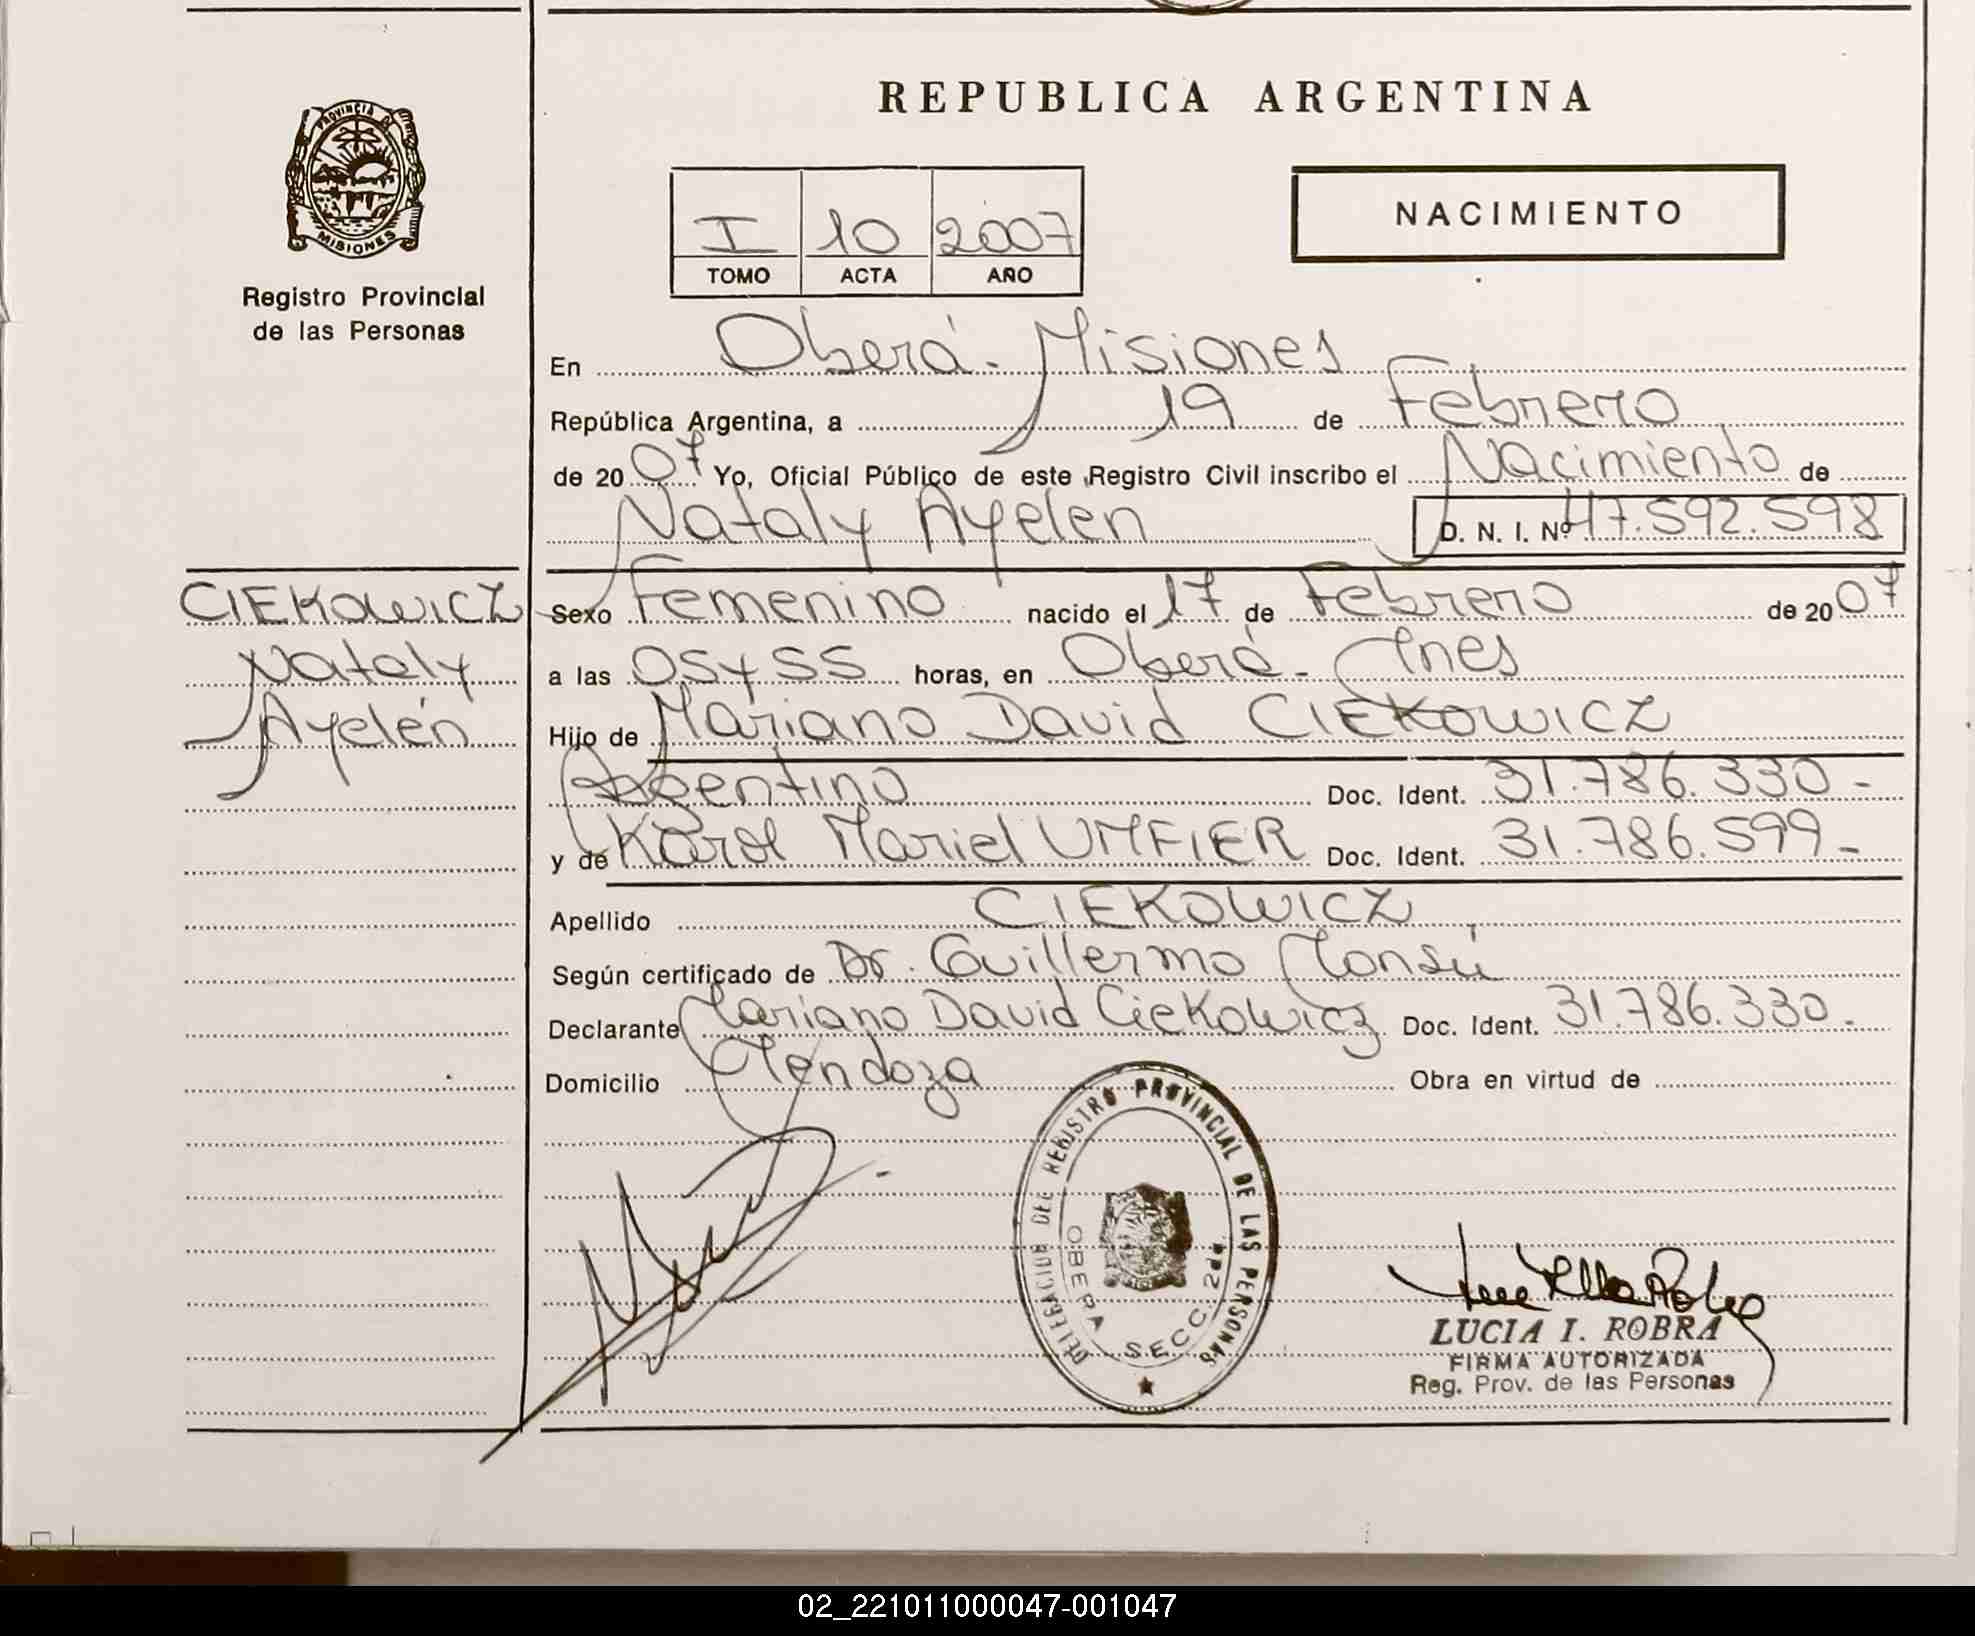 REPUBLICA ARGENTINA
PROVINCIA DE MISIONES
Registro Provincial
de las Personas
I 10 2007
TOMO ACTA AÑO
NACIMIENTO
En Oberá - Misiones
República Argentina, a 19 de Febrero
de 2007 Yo, Oficial Público de este Registro Civil inscribo el Nacimiento de
Nataly Ayelen D. N. I. Nº 47.592.598
CIEKOWICZ
Nataly
Ayelén
Sexo Femenino nacido el 17 de Febrero de 2007
a las 05 y 55 horas, en Oberá - Ines
Hijo de Mariano David CIEKOWICZ
Argentino Doc. Ident. 31.786.330 -
y de Karol Mariel UMFIER Doc. Ident. 31.786.599 -
Apellido CIEKOWICZ
Según certificado de Dr. Guillermo Monsú
Declarante Mariano David Ciekowicz Doc. Ident. 31.786.330.
Domicilio Mendoza Obra en virtud de
DELEGACION DEL REGISTRO PROVINCIAL DE LAS PERSONAS
OBERA SECC. 2da
LUCIA I. ROBRA
FIRMA AUTORIZADA
Reg. Prov. de las Personas
02_221011000047-001047